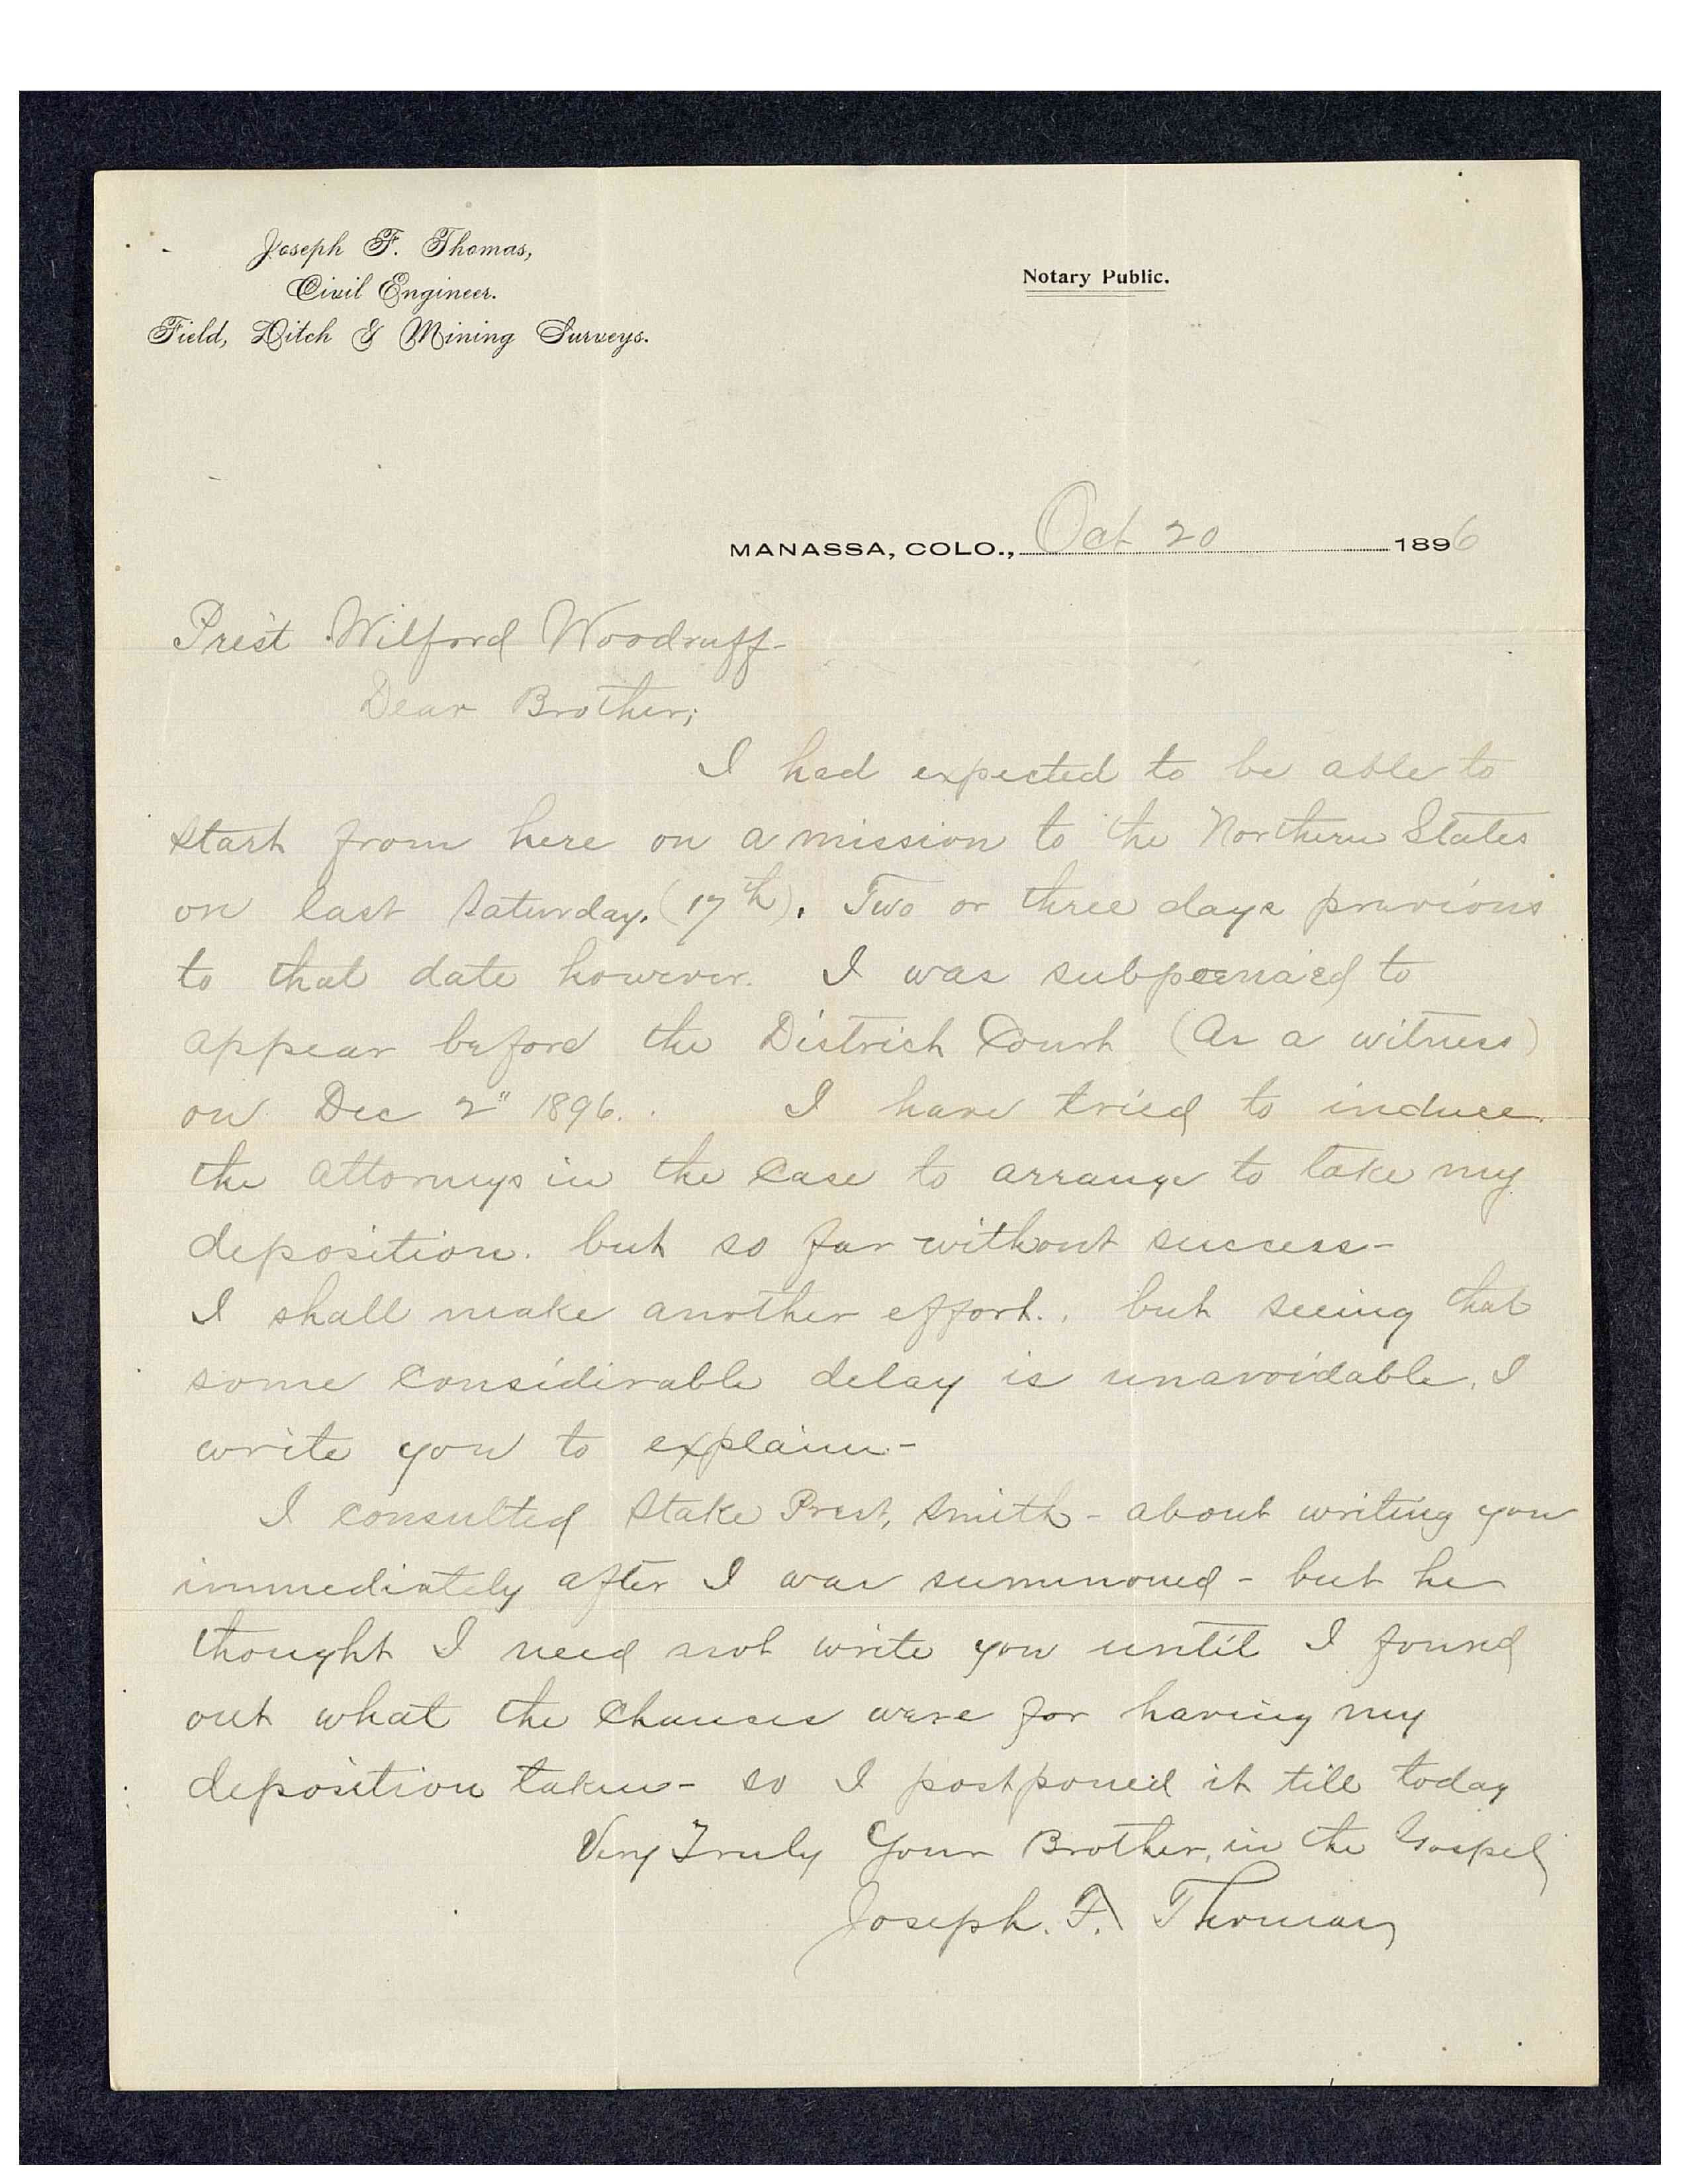 Joseph F. Thomas,
Civil Engineer.
Field, Ditch & Mining Surveys.
Notary Public.
MANASSA, COLO., Oct 20 1896
Prest Wilford Woodruff-
Dear Brother;
I had expected to be able to
start from here on a mission to the Northern States
on last Saturday. (17th). Two or three days previous
to that date however. I was subpoena'ed to
appear before the District Court (As a witness)
on Dec 2" 1896. I have tried to induce
the attorneys in the Case to arrange to take my
deposition. but so far without success-
I shall make another effort.. but seeing that
some considerable delay is unavoidable, I
write you to explain-
I consulted Stake Prest, Smith - about writing you
immediately after I was summoned - but he
thought I need not write you until I found
out what the Chances were for having my
deposition taken - so I postponed it till today
Very Truly Your Brother, in the Gospel
Joseph. F. Thomas